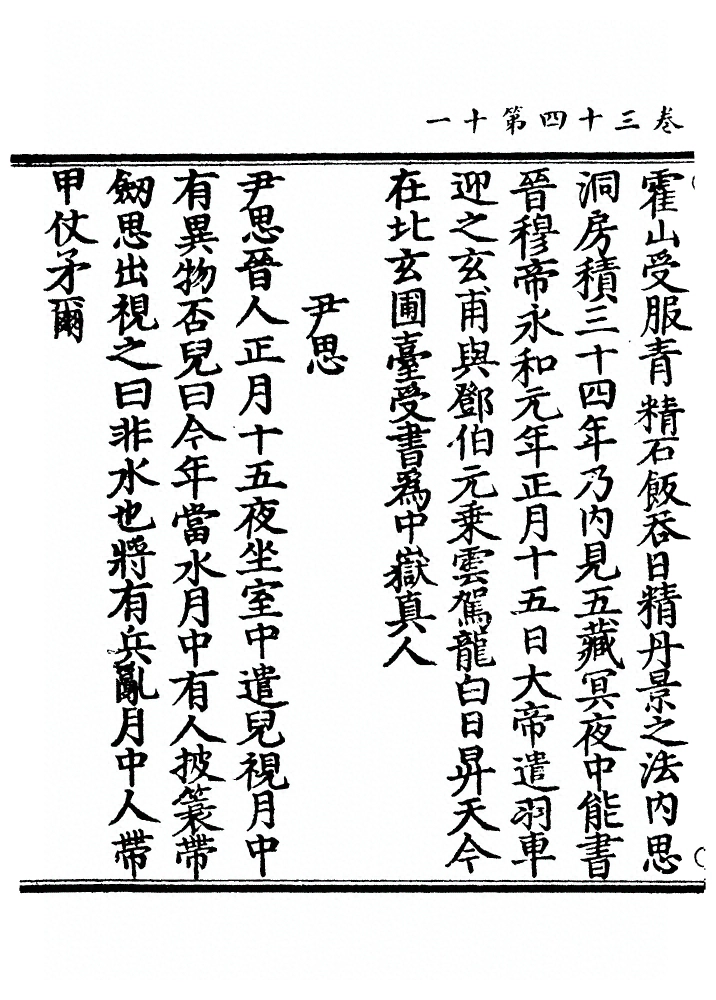 卷三十四第十一
霍山受服青精石飯吞日精丹景之法內思
洞房積三十四年乃內見五藏冥夜中能書
晉穆帝永和元年正月十五日大帝遣羽車
迎之玄甫與鄧伯元乗雲駕龍白日昇天今
在北玄圃臺受書為中嶽真人
尹思
尹思晉人正月十五夜坐室中遣兒視月中
有異物否兒曰今年當水月中有人披簑帶
劒思出視之曰非水也將有兵亂月中人帶
甲仗矛爾